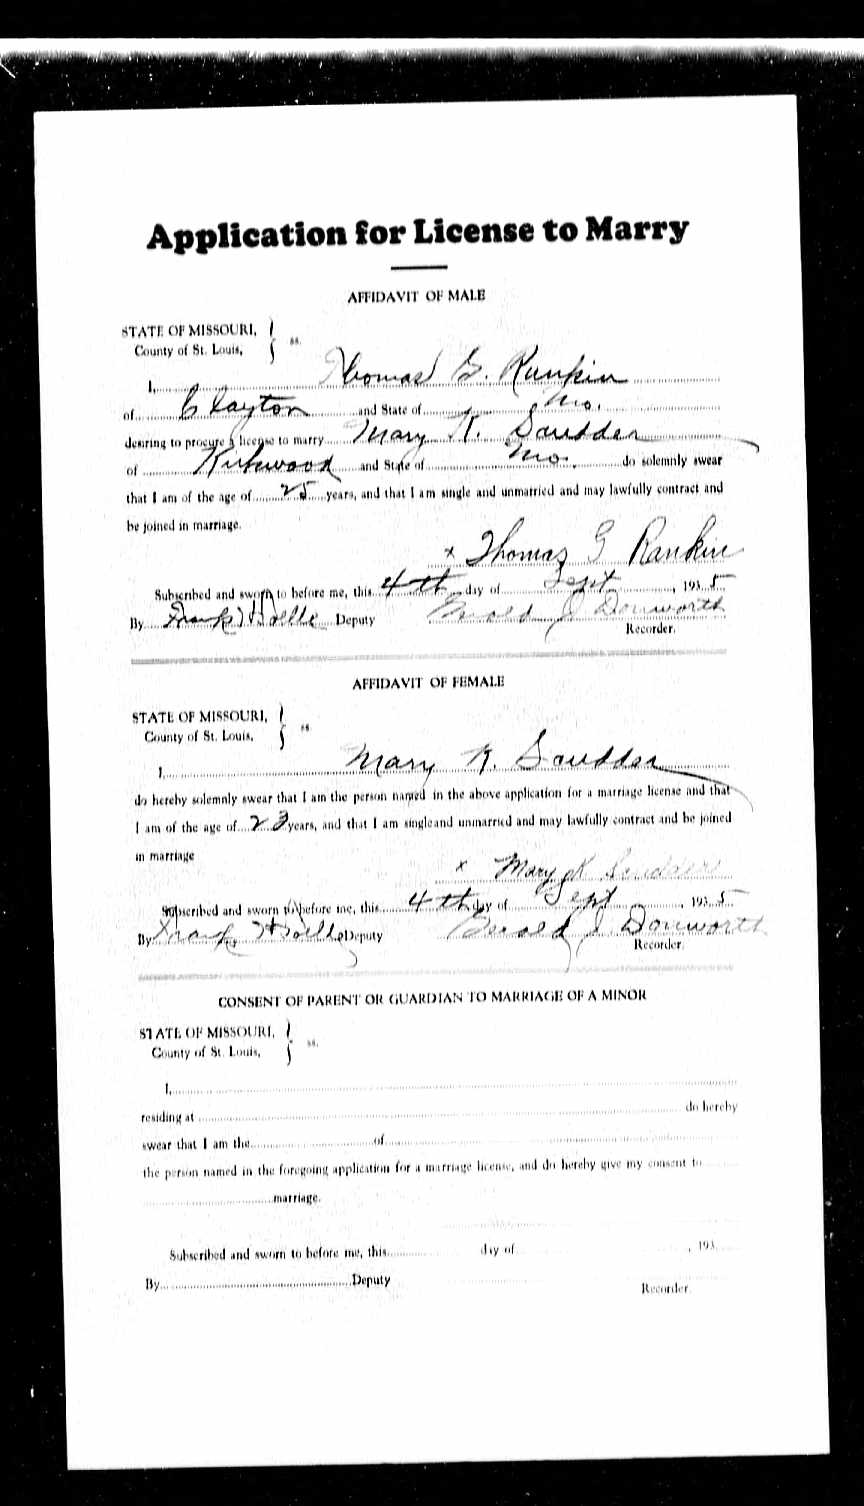 Application for License to Marry
AFFIDAVIT OF MALE
STATE OF MISSOURI,
County of St. Louis, } ss.
I, Thomas G. Rankin
of Clayton and State of Mo.
desiring to procure a license to marry Mary K. Scudder
of Kirkwood and State of Mo. do solemnly swear
that I am of the age of 25 years, and that I am single and unmarried and may lawfully contract and
be joined in marriage.
x Thomas G Rankin
Subscribed and sworn to before me, this 4th day of Sept, 1935
By Frank Deputy J Donworth
Recorder.
AFFIDAVIT OF FEMALE
STATE OF MISSOURI,
County of St. Louis, } ss.
I, Mary K. Scudder
do hereby solemnly swear that I am the person named in the above application for a marriage license and that
I am of the age of 23 years, and that I am single and unmarried and may lawfully contract and be joined
in marriage
x Mary K Scudder
Subscribed and sworn to before me, this 4th day of Sept, 1935
By Frank Deputy J Donworth
Recorder.
CONSENT OF PARENT OR GUARDIAN TO MARRIAGE OF A MINOR
STATE OF MISSOURI,
County of St. Louis, } ss.
I,
residing at do hereby
swear that I am the of
the person named in the foregoing application for a marriage license, and do hereby give my consent to
marriage.
Subscribed and sworn to before me, this day of , 193
By Deputy
Recorder.